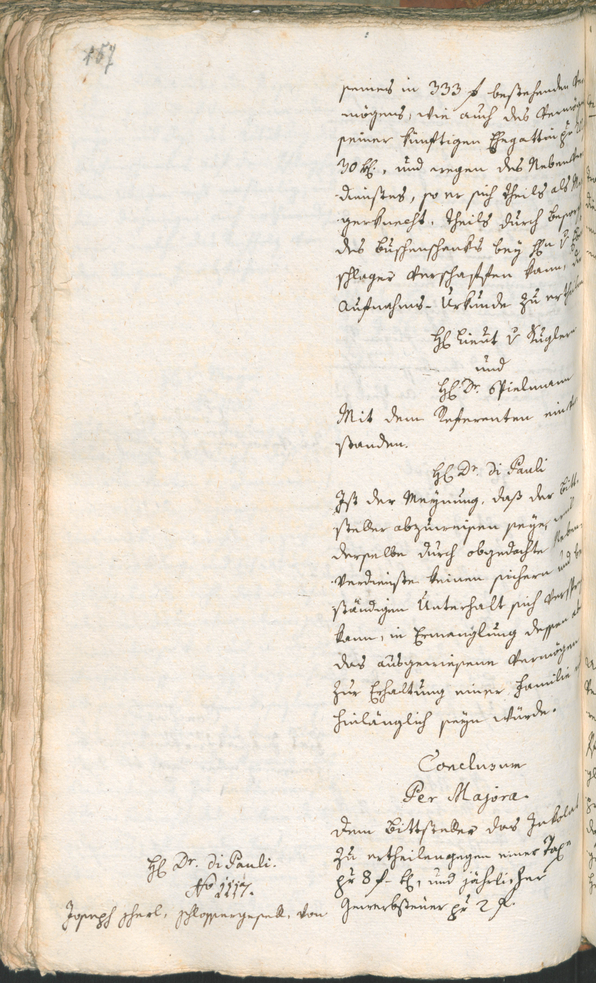 157
seines in 333 f bestehenden
mögens, wie auch des Vermögen
seiner künftigen Ehegattin pr
30 kr., und wegen des Neben
dienstes, so er sich theils als
gerknecht, theils durch
des Buschenschanks bey H. v.
schlager verschaffen kann, die
Aufnahms-Urkunde zu ertheilen
H. Lieut v Kugler
und
H. Dr. Spielmann
Mit dem Referenten einver
standen.
H. Dr. di Pauli
Ist der Meynung, daß der Bitt
steller abzuweisen seye, weil
derselbe durch obgedachte Neben
verdienste keinen sichern und be
ständigen Unterhalt sich verschaffen
kann, in Ermanglung dessen aber
das ausgewiesene Vermögen
zur Erhaltung einer Familie
hinlänglich seyn würde.
Conclusum
Per Majora
dem Bittsteller das Inkolat
zu ertheilen gegen einer Taxe
pr 8 f. kr, und jährlicher
Gewerbsteuer pr 2 f.
H. Dr. di Pauli.
No 1117.
Joseph Scherl, Schlossergesell, von